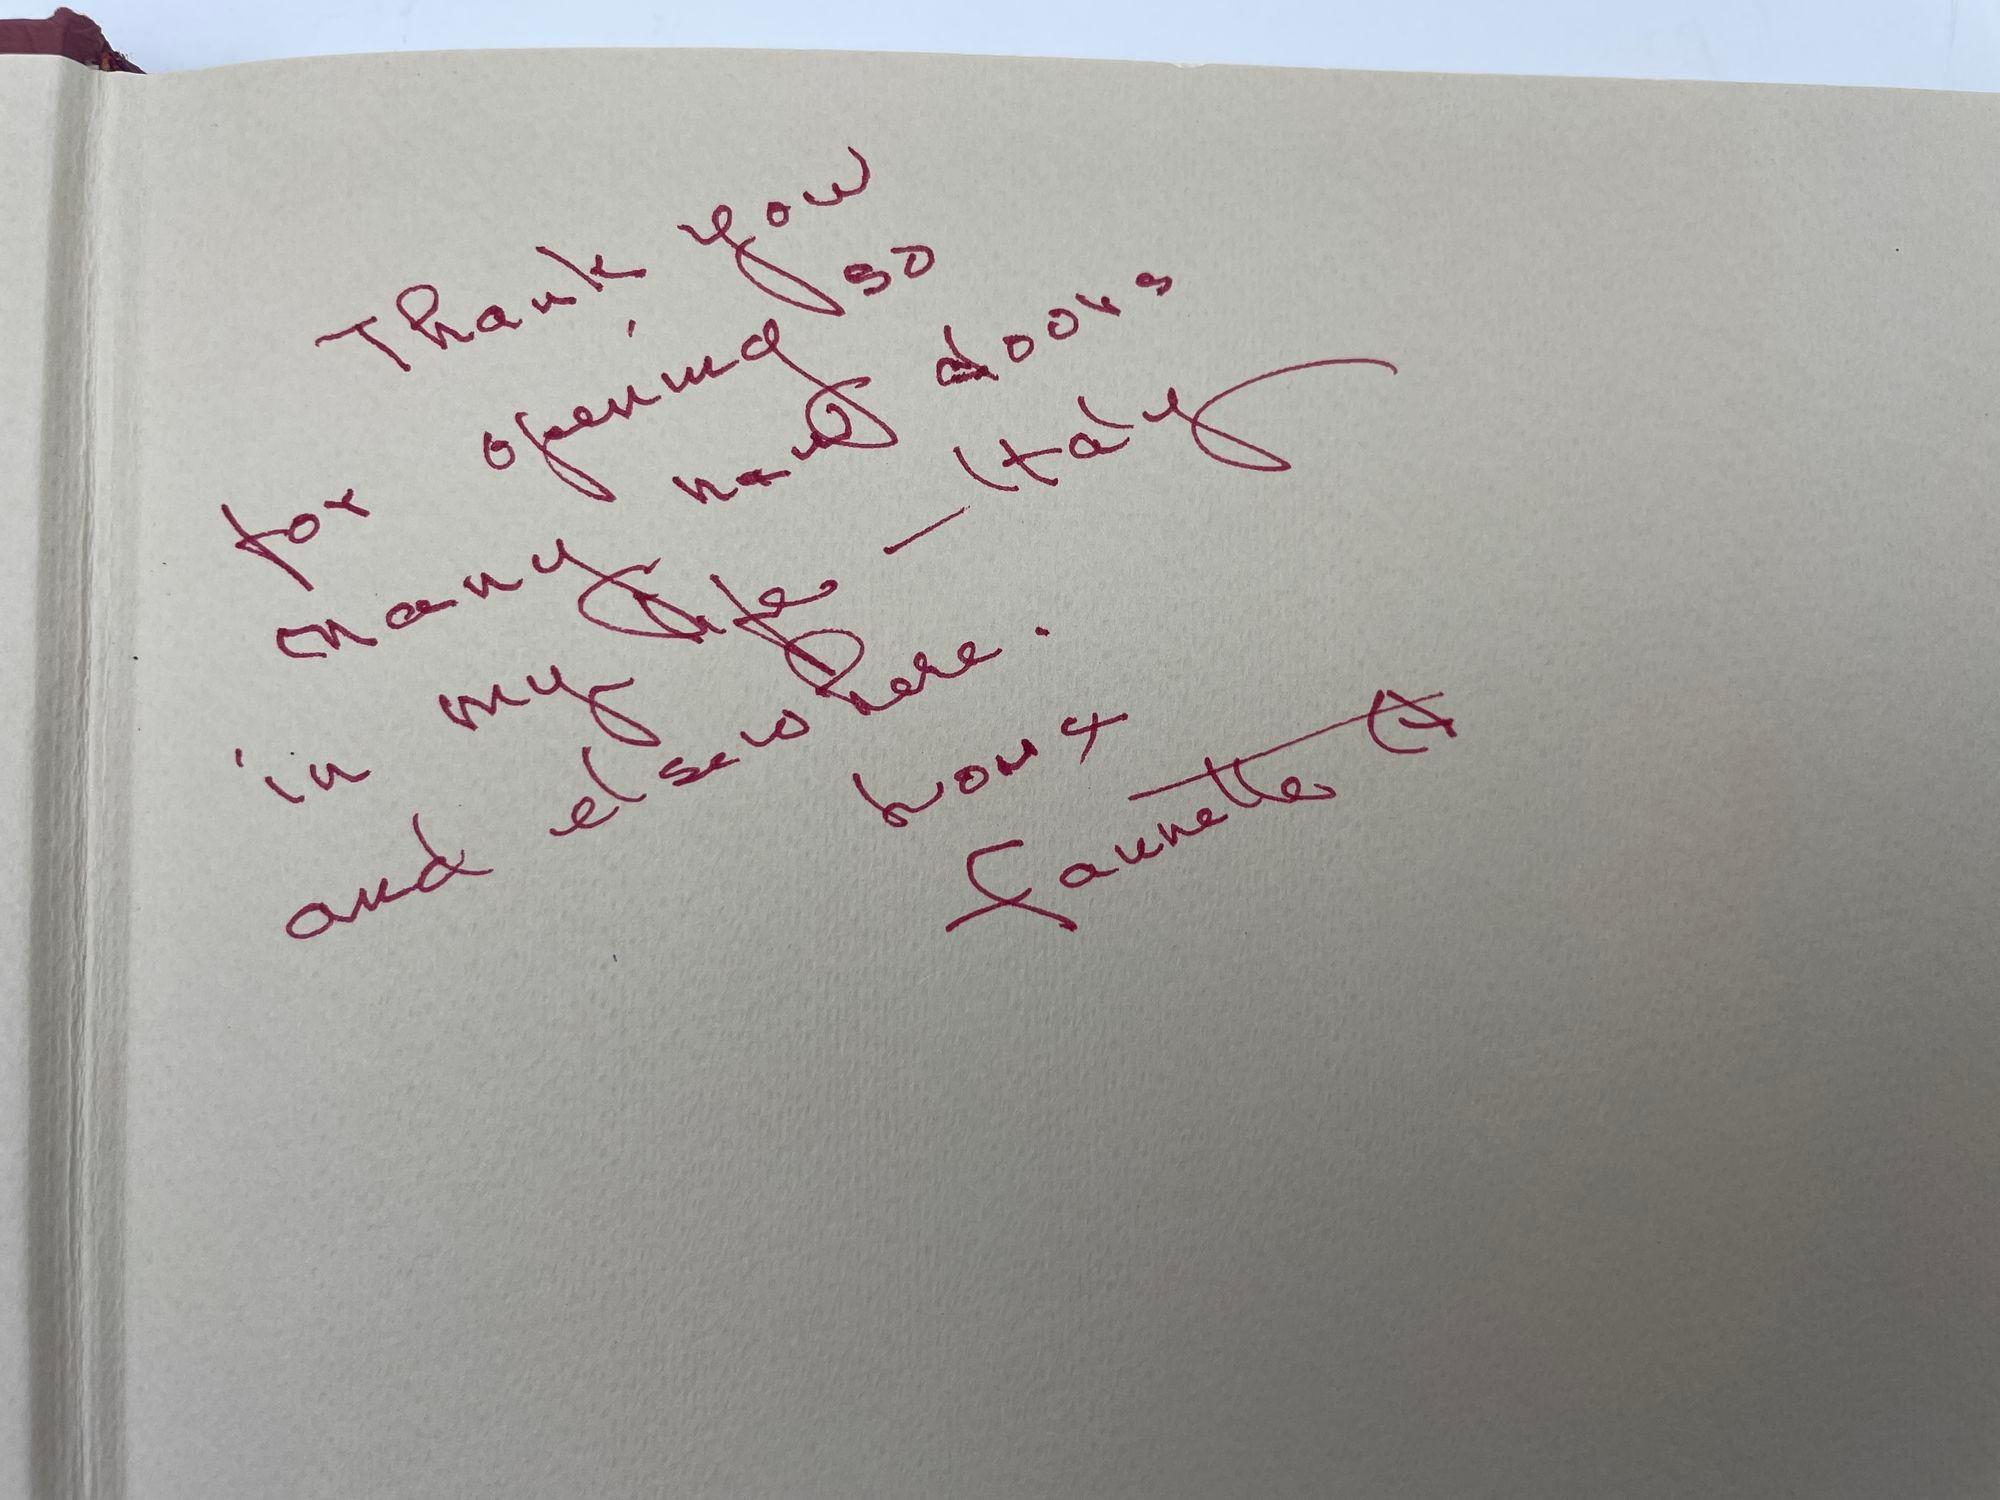 Thank you
for opening so
many new doors
in my life - Italy
and elsewhere.
Jannette